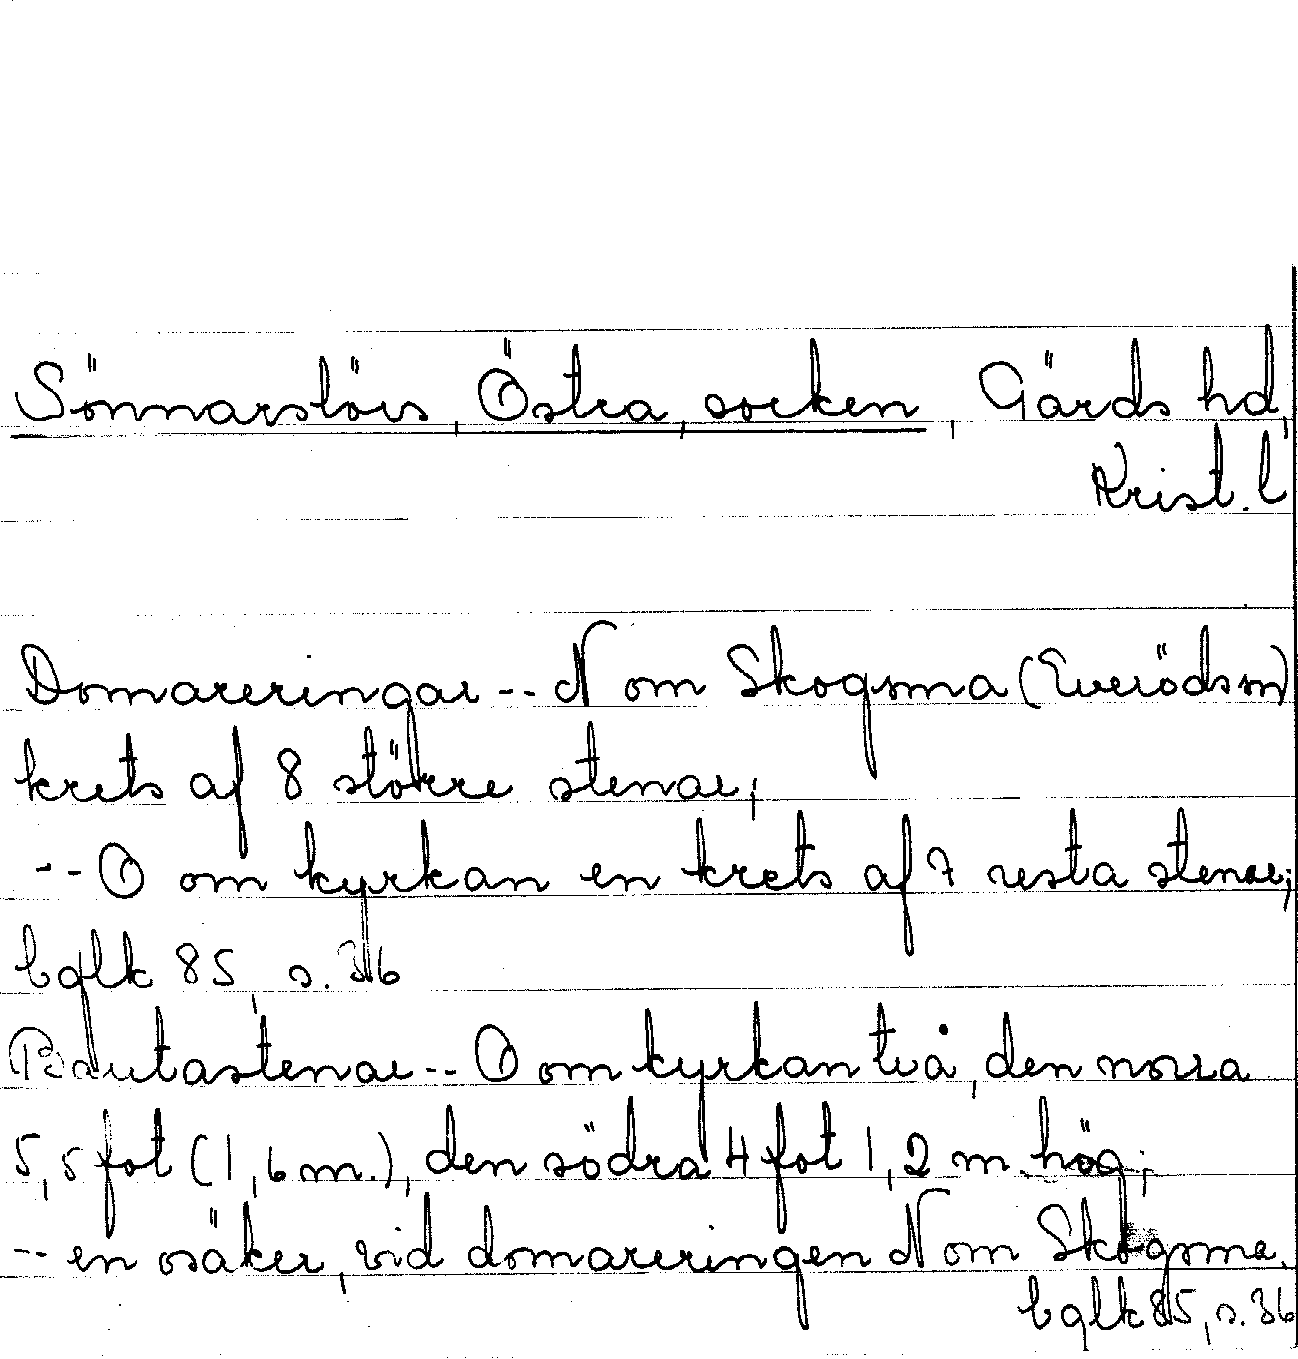 Sönnarslövs, Östra, socken, Gärds hd,
Krist. l
Domareringar -- N om Skogsma (Everödssn)
krets af 8 större stenar;
-- O om kyrkan en krets af 7 resta stenar;
bglk 85, s. 36
Bautastenar -- O om kyrkan två, den norra
5,5 fot (1,6 m.), den södra 4 fot 1,2 m. hög;
-- en osäker, vid domareringen N om Skogsma.
bglk 85, s. 36